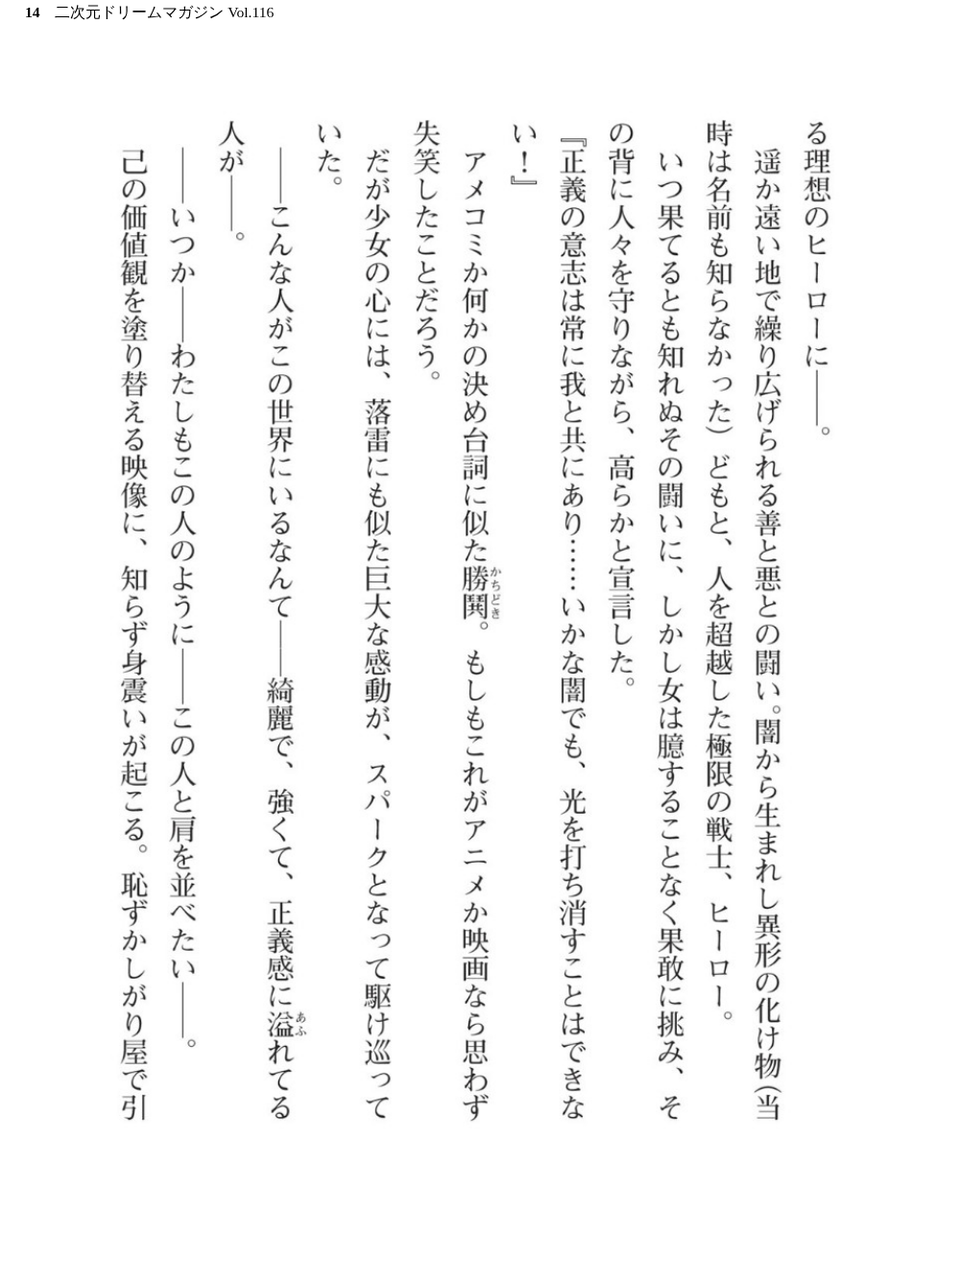 14 二次元ドリームマガジン Vol.116
る理想のヒーローに――。
遥か遠い地で繰り広げられる善と悪との闘い。闇から生まれし異形の化け物（当
時は名前も知らなかった）どもと、人を超越した極限の戦士、ヒーロー。
いつ果てるとも知れぬその闘いに、しかし女は臆することなく果敢に挑み、そ
の背に人々を守りながら、高らかと宣言した。
『正義の意志は常に我と共にあり……いかな闇でも、光を打ち消すことはできな
い！』
アメコミか何かの決め台詞に似た勝鬨かちどき。もしもこれがアニメか映画なら思わず
失笑したことだろう。
だが少女の心には、落雷にも似た巨大な感動が、スパークとなって駆け巡って
いた。
――こんな人がこの世界にいるなんて――綺麗で、強くて、正義感に溢あふれてる
人が――。
――いつか――わたしもこの人のように――この人と肩を並べたい――。
己の価値観を塗り替える映像に、知らず身震いが起こる。恥ずかしがり屋で引